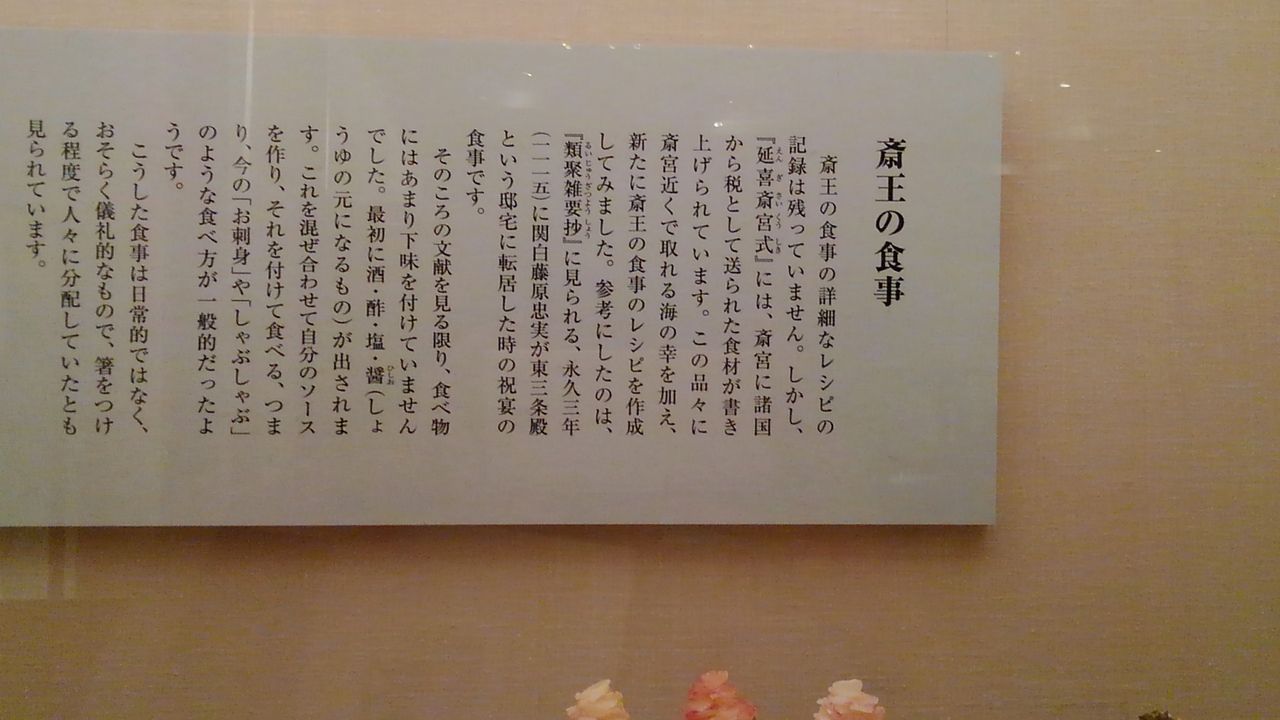 斎王の食事
斎王の食事の詳細なレシピの
記録は残っていません。しかし、
『延喜斎宮式』には、斎宮に諸国
えんぎさいくうしき
から税として送られた食材が書き
上げられています。この品々に
斎宮近くで取れる海の幸を加え、
新たに斎王の食事のレシピを作成
してみました。参考にしたのは、
『類聚雑要抄』に見られる、永久三年
るいじゅうざつようしょう
(一一一五)に関白藤原忠実が東三条殿
という邸宅に転居した時の祝宴の
食事です。
そのころの文献を見る限り、食べ物
にはあまり下味を付けていません
でした。最初に酒・酢・塩・醤(しょ
ひしお
うゆの元になるもの)が出されま
す。これを混ぜ合わせて自分のソース
を作り、それを付けて食べる、つま
り、今の「お刺身」や「しゃぶしゃぶ」
のような食べ方が一般的だったよ
うです。
こうした食事は日常的ではなく、
おそらく儀礼的なもので、箸をつけ
る程度で人々に分配していたとも
見られています。